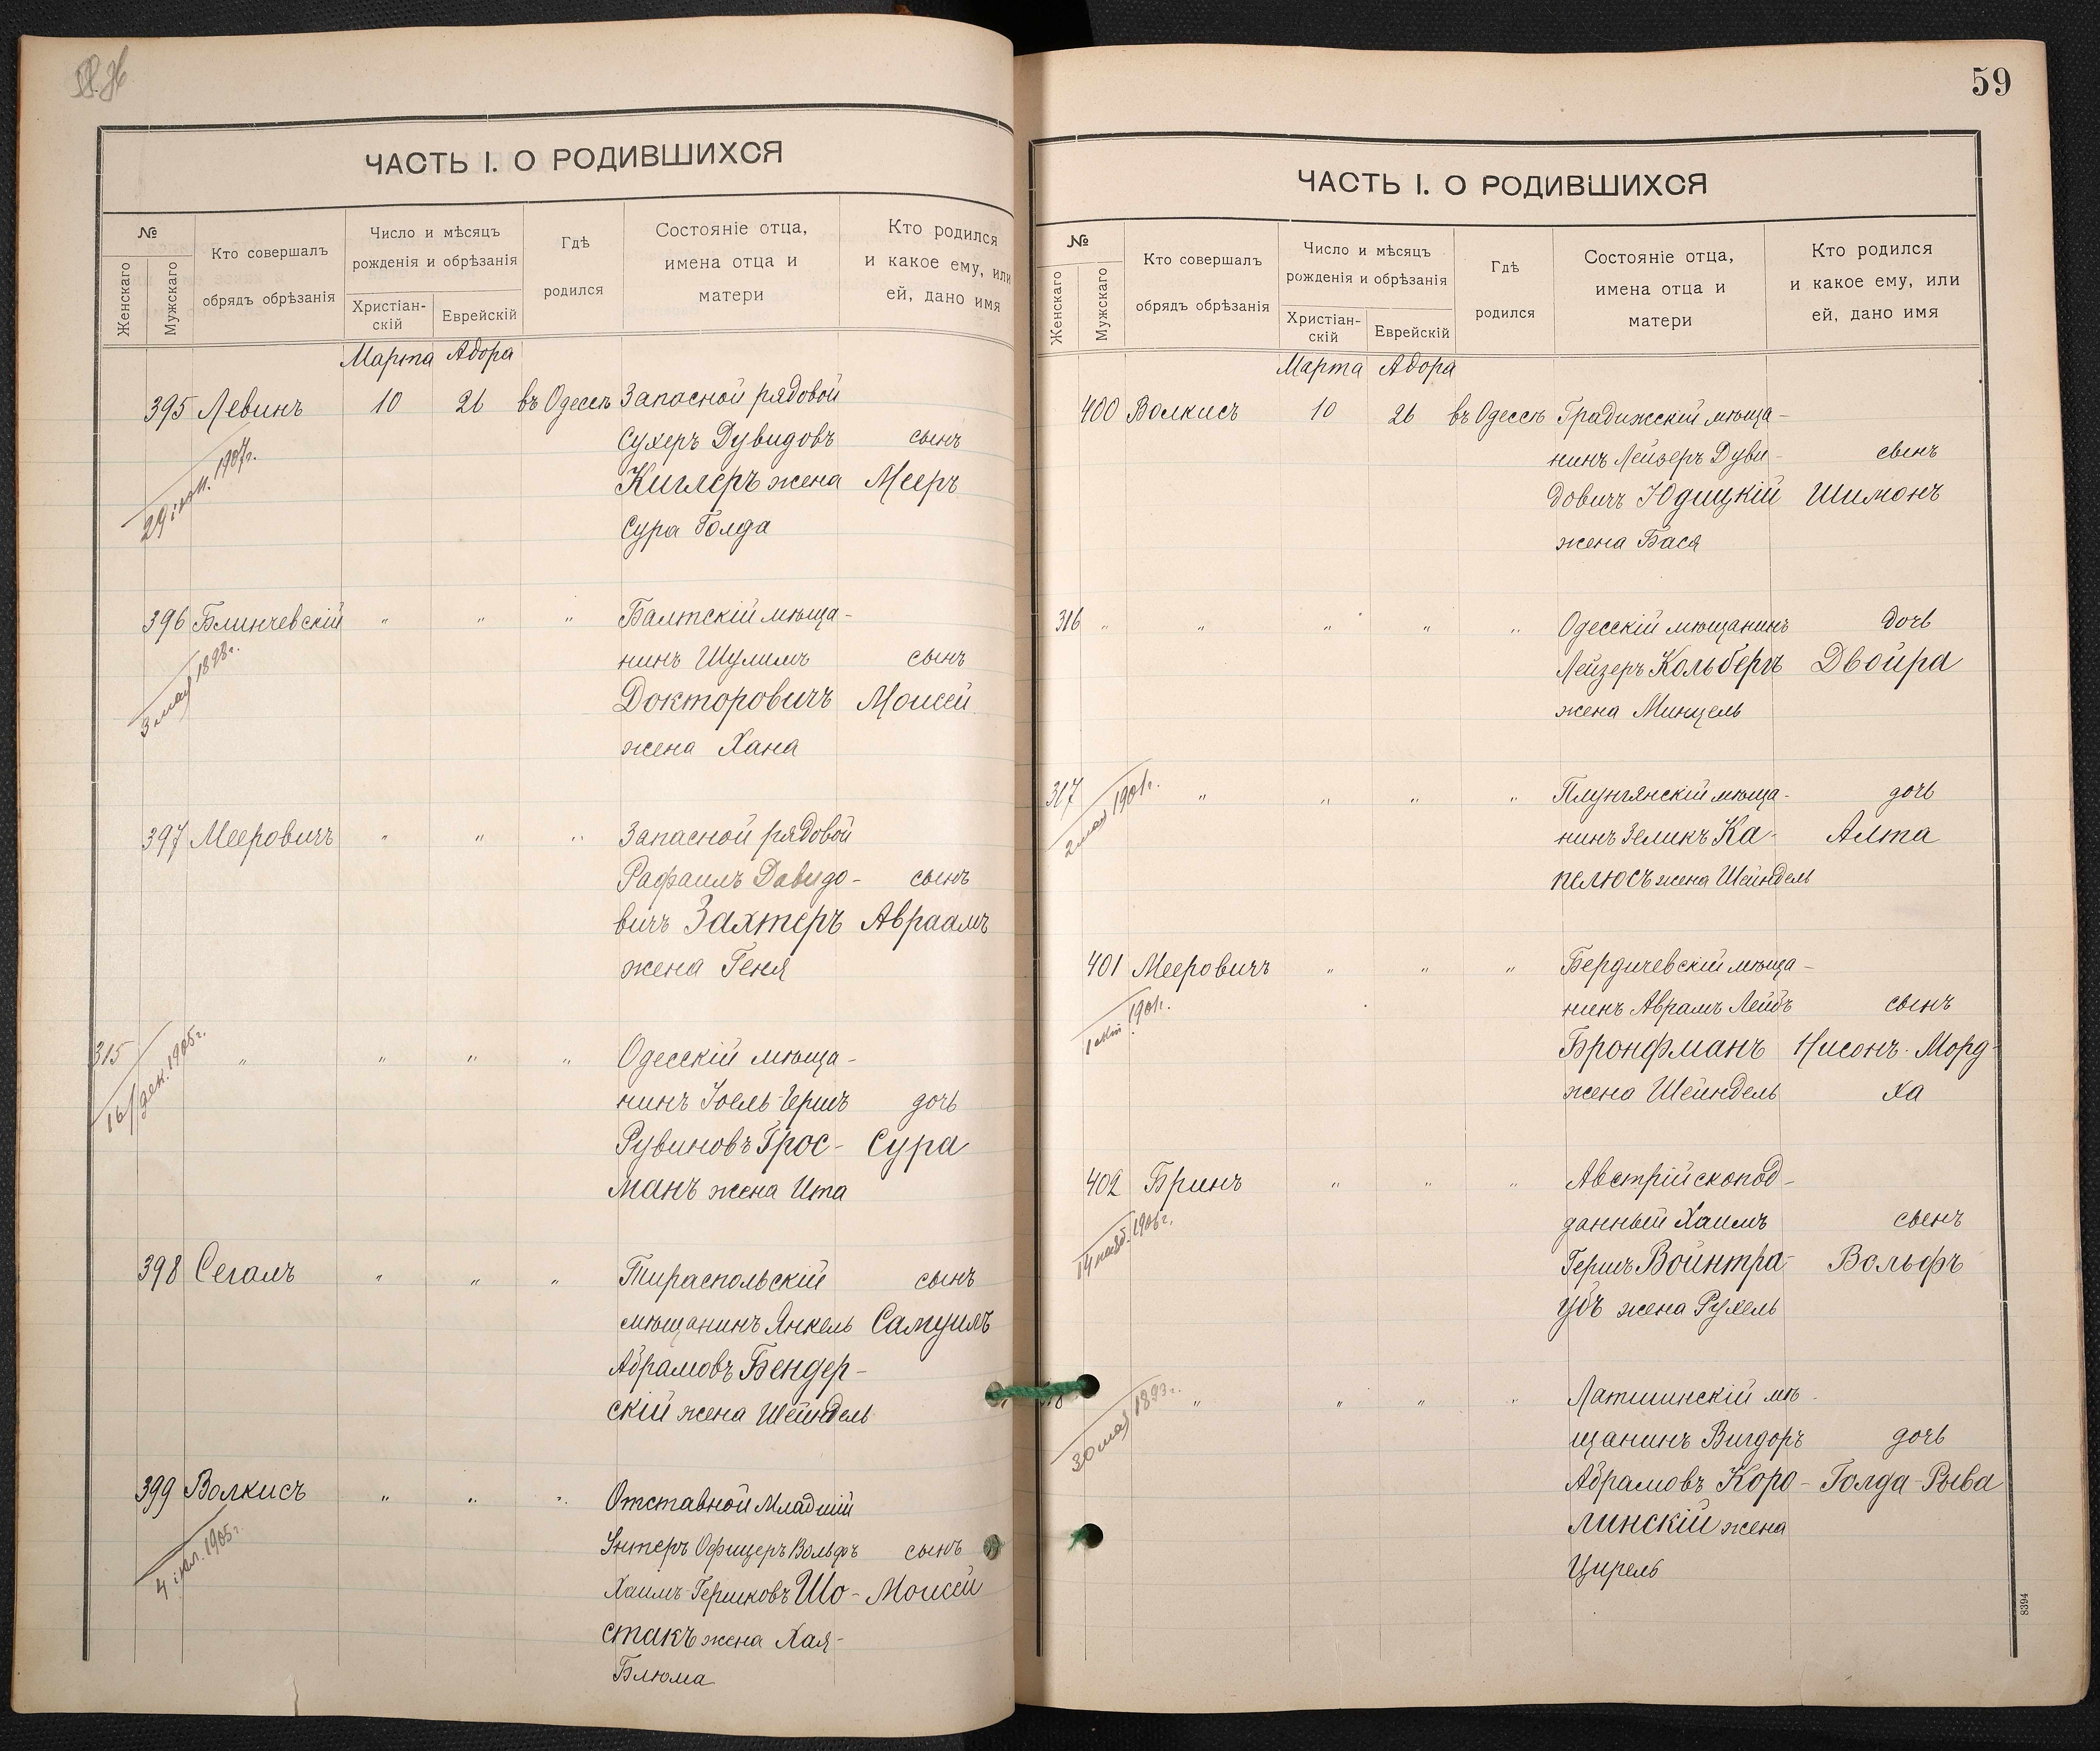 ЧАСТЬ I. О РОДИВШИХСЯ
№
Женскаго
Мужскаго
Кто совершалъ
обрядъ обрѣзанія
Число и мѣсяцъ
рожденія и обрѣзанія
Христіан-
скій
Еврейскій
Гдѣ
родился
Состояніе отца,
имена отца и
матери
Кто родился
и какое ему, или
ей, дано имя
Марта Адора
395 Левинъ 10 26 въ Одессѣ Запасной рядовой
Сухеръ Дувидовъ сынъ
Киглеръ жена Мееръ
Сура Голда
1907г.
396 Блинчевскій " " " Балтскій мѣща-
нинъ Шулимъ сынъ
Докторовичъ Моисей
жена Хана
3 мая 1898г.
397 Мееровичъ " " " Запасной рядовой
Рафаилъ Давидо- сынъ
вичъ Захтеръ Авраамъ
жена Геня
315 " " " " Одесскій мѣща-
нинъ Іоель-Гершъ дочь
Рувиновъ Грос- Сура
манъ жена Ита
16/дек. 1905г.
398 Сегалъ " " " Тираспольскій сынъ
мѣщанинъ Янкель Самуилъ
Абрамовъ Бендер-
скій жена Шейндель
399 Волкисъ " " " Отставной Младшій
Унтеръ Офицеръ Вольфъ сынъ
Хаимъ-Гершковъ Шо- Моисей
стакъ жена Хая-
Блюма
4 іюл. 1905г.
59
ЧАСТЬ I. О РОДИВШИХСЯ
№
Женскаго
Мужскаго
Кто совершалъ
обрядъ обрѣзанія
Число и мѣсяцъ
рожденія и обрѣзанія
Христіан-
скій
Еврейскій
Гдѣ
родился
Состояніе отца,
имена отца и
матери
Кто родился
и какое ему, или
ей, дано имя
Марта Адора
400 Волкисъ 10 26 въ Одессѣ Градижскій мѣща-
нинъ Лейзеръ Дуви- сынъ
довичъ Юдицкій Шимонъ
жена Бася
316 " " " " " Одесскій мѣщанинъ дочь
Лейзеръ Кольберъ Двойра
жена Минцель
317 " " " " Плунгянскій мѣща- дочь
нинъ Зеликъ Ка- Алта
пелюсъ жена Шейндель
2 мая 1901г.
401 Мееровичъ " " " Бердичевскій мѣща-
нинъ Аврамъ Лейбъ сынъ
Бронфманъ Нисонъ-Морд-
жена Шейндель ха
1901г.
402 Бринъ " " " Австрійскопод-
данный Хаимъ сынъ
Гершъ Войнтра- Вольфъ
убъ жена Рухель
1906г.
" " " " мѣ-
щанинъ Вигдоръ дочь
Абрамовъ Коро- Голда-Рыва
линскій жена
Цирель
30 мая 1893г.
8394